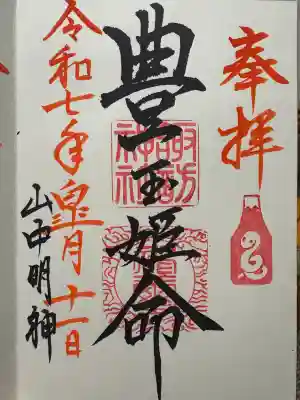 奉拝
豊玉姫命
諏訪
神社
令和七年皐月十一日
山中明神